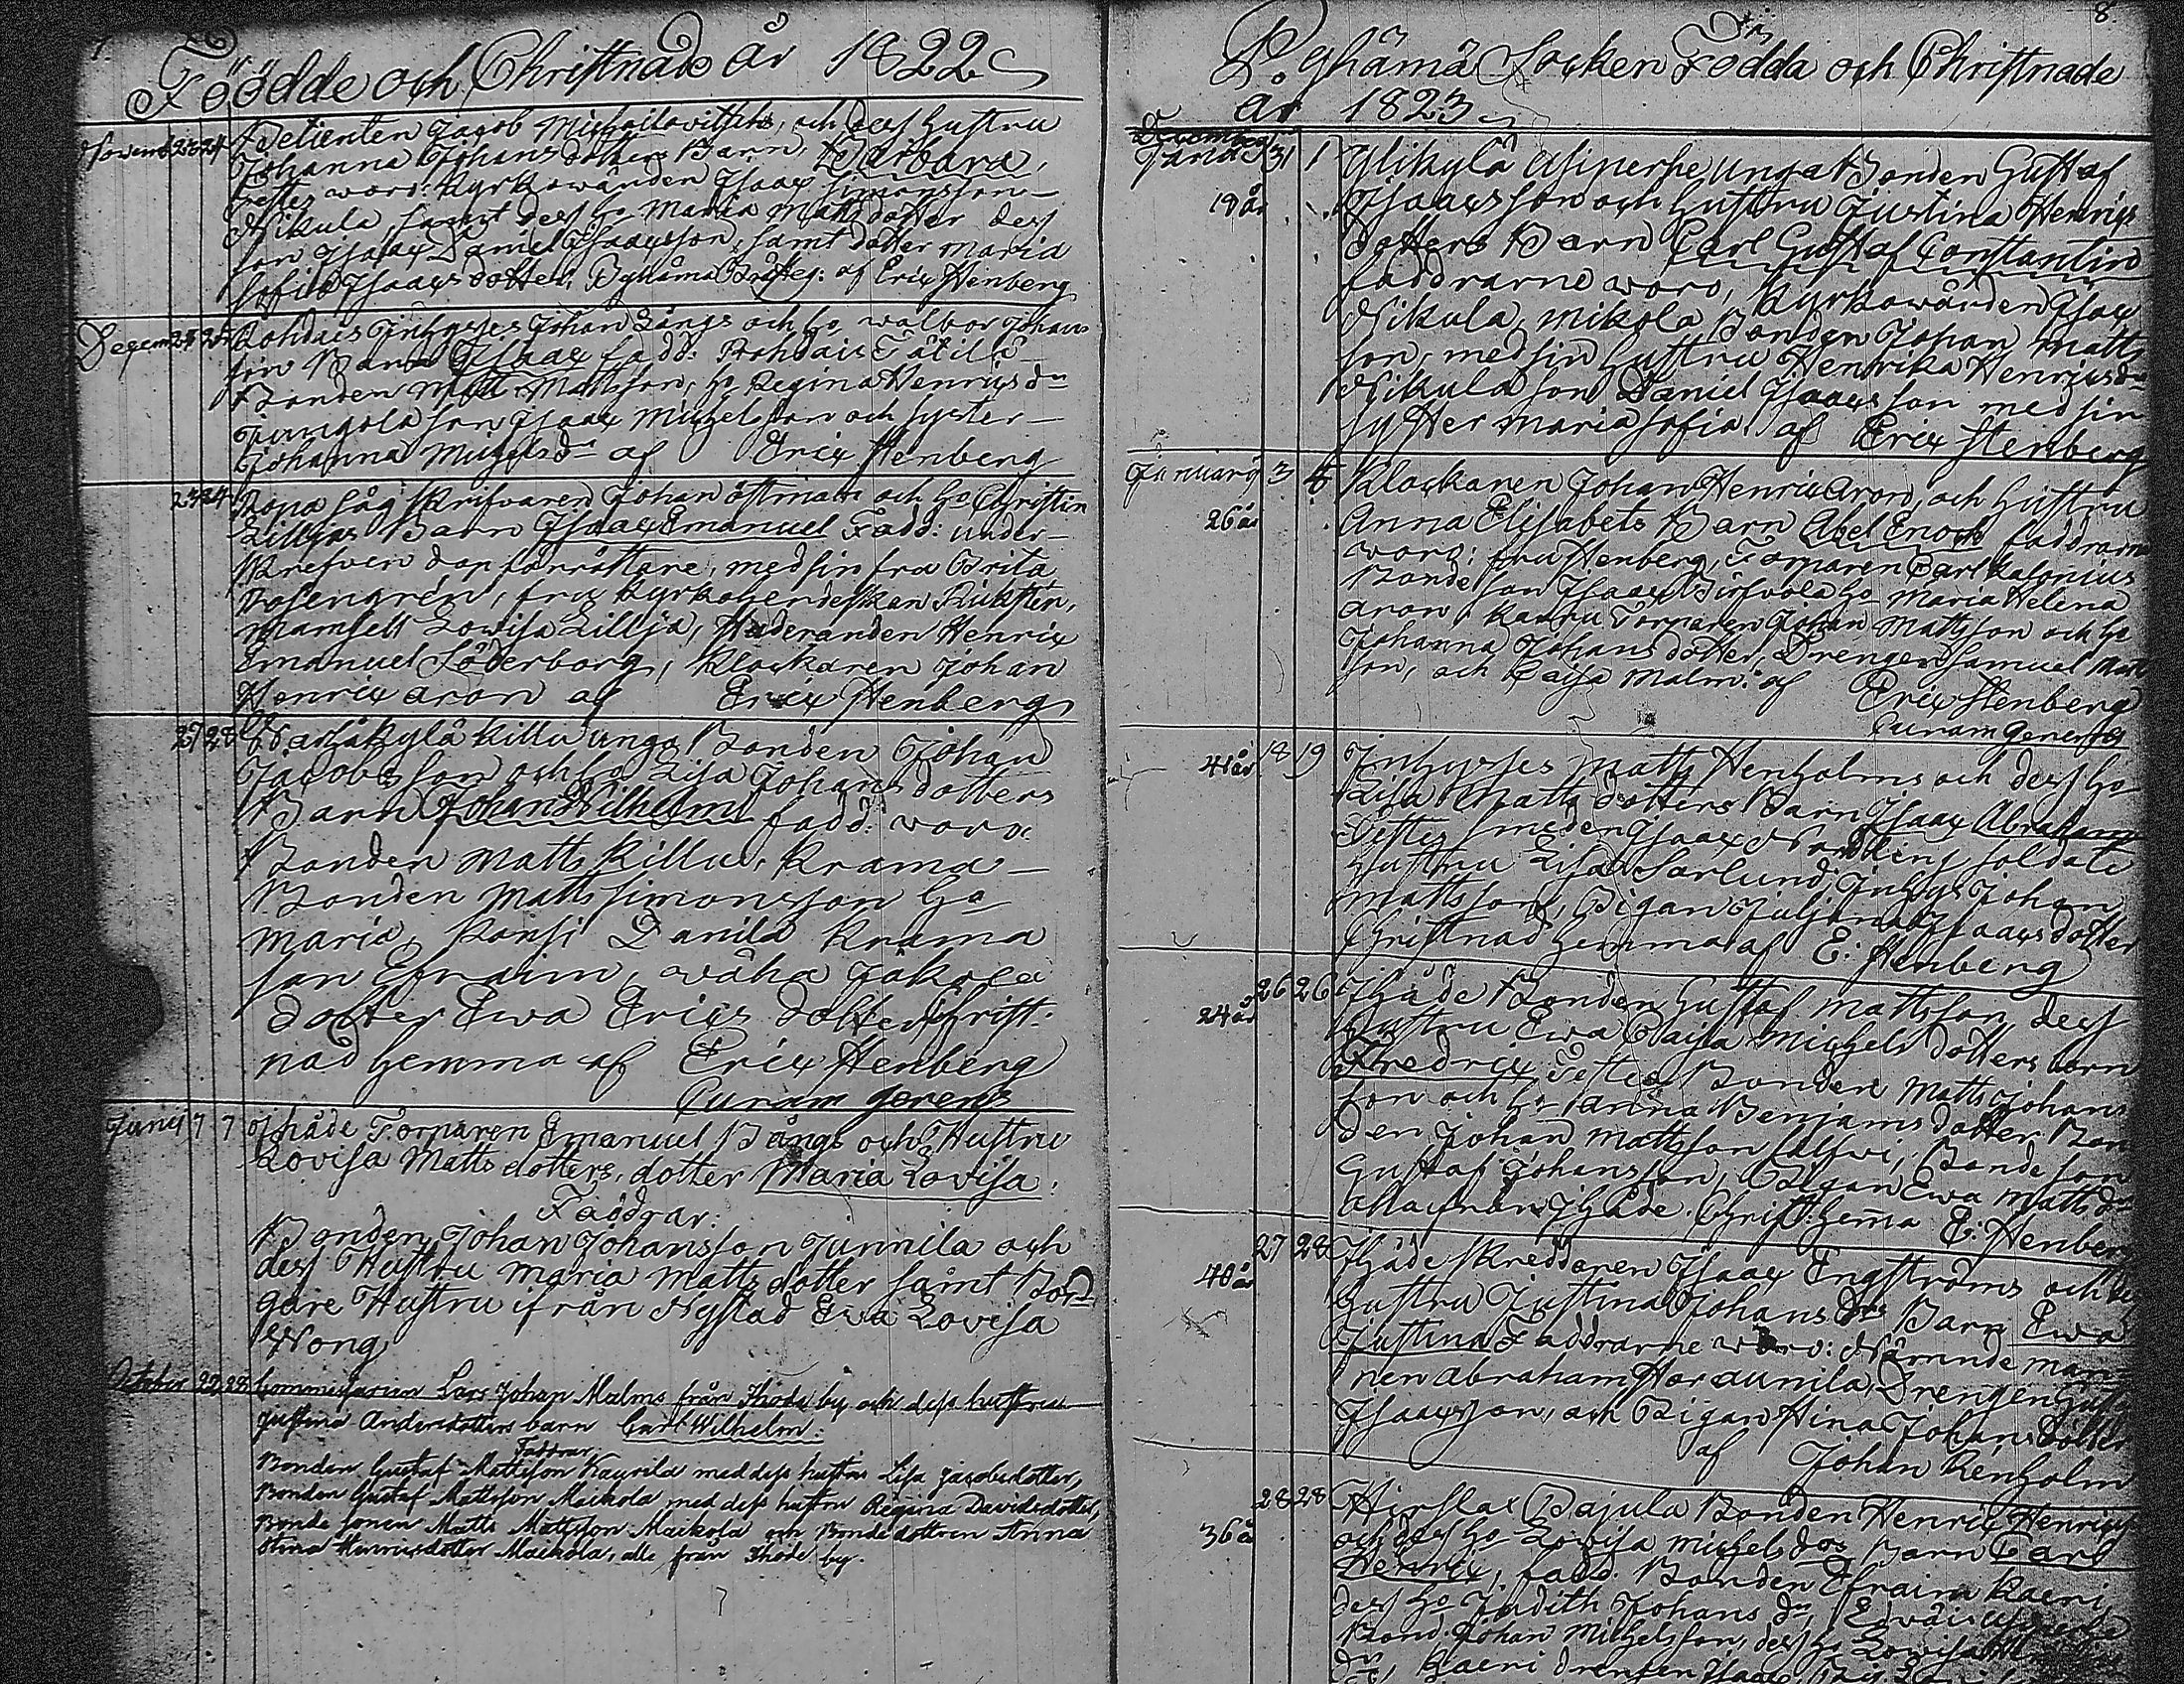 Föödde och Christnade år 1822
Novemb 23 24 Betienten Jacob Michailovitsch, och dess Hustru
Johanna Johans dotters Barn, Barbara,
Testes woro: Kyrkowärden Isaac Simonsson
Nikula, samt dess Ho Maria Matts dotter dess
son Isaac Daniel Isaacsson, samt dotter Maria
Sofia Isaacs dotter, Pyhämä af Eric Stenberg
Decem 24 25 Rohdais Inhyses Johan Långs och Ho Walbor Johans
Barn Isaac fadd: Rohdais Tätilä
Bonden Matts Mattsson, Ho Regina Henrics dr
Jungola son Isaac Michelsson och syster
Johanna Michels dr af Eric Stenberg
23 24 Ropa såg skrifvaren Johan Östman och Ho Christin
Lilljas Barn Isaac Emanuel Fadd: under-
skrefven dop förrättare, med sin fru Brita
Rosengrén, fru Kyrkoherdeskan
Mamsell Lowisa Lillja, Studeranden Henric
Emanuel Söderborg, Klockaren Johan
Henric Aron af Eric Stenberg
27 28 Killu unga Bonden Johan
Jacobsson och Ho Lisa Johans dotters
Barn Johan Wilhelm fadd: woro:
Bonden Matts Killu, Krama
Bonden Matts Simonsson Ho
Maria, Konsi Danila Krama
son Efraim, Wäha Jäkölä
dotter Ewa Erics dotter Christ-
nad hemma af Eric Stenberg
Curam gerens
Junii 7 7 Ihåde Torparen Emanuel Bångs och Hustru
Lovisa Matts dotters, dotter Maria Lovisa.
Faddrar:
Bonden Johan Johansson Junnila och
dess Hustru Maria Matts dotter samt Bor-
gare Hustru ifrån Nystad Eva Lovisa
Wong
October 22 28 Commissarien Lars Johan Malms från Ihode by och dess hustru
Justina Andersdotters barn Carl Wilhelm:
Faddrar
Bonden Gustaf Mattsson Kaurila med dess hustru Lisa Jacobsdotter,
Bonden Gustaf Mattsson Maikola med dess hustru Regina Davidsdotter,
Bonde sonen Matts Mattsson Maikola och Bondedottren Anna
Stina Henricsdotter Maikola, alle från Ihode by.
8
Pyhämä Socken Födda och Christnade
år 1823
December
Januar 31 1 Mikylä Unga Bonden Gustaf
19 år Isaacsson och Hustru Justina Henrics
dotters Barn Carl Gustaf Constantin
faddrarne woro, Kyrkowärden Isaac
Nikula, Mikola Bonden Johan Matts
son, med sin Hustru Henrika Henrics dr
Nikula son Daniel Isaacsson med sin
syster Maria Sofia af Eric Stenberg
Januari 3 5 Klockaren Johan Henric Aron, och Hustru
26 år Anna Elisabets Barn Abel Enoch faddrarne
woro: fru Stenberg, Torparen Carl
Bonde son Isaac Ho Maria Helena
Aron, Torparen Johan Mattsson och Ho
Johanna Johans dotter, Drengen Samuel Matts
son, och Caisa Malm: af Eric Stenberg
Curam gerens
41 år 18 19 Inhyses Matts Stenholms och dess Ho
Lisa Matts dotters Barn Isaac Abraham
Testes Smeden Isaac Nordling soldate
hustru Lisa Sarlund, Inhys Johan
Mattsson, Pigan Juljana Isaacs dotter
Christnad hemma af E: Stenberg
26 26 Ihåde Bonden Gustaf Mattsson dess
24 år Hustru Ewa Caisa Michels dotters barn
Fredric Testes Bonden Matts Johans
son och Ho Anna Benjams dotter Bon
den Johan Mattsson Salfvi, Bonde son
Gustaf Johansson, Pigan Ewa Matts dr
alla från Ihåde. Christ: hemma E: Stenberg
27 28 Ihåde Skreddaren Isaac Engströms och
40 år Hustru Justina Johans drs Barn Ewa
Justina Faddrarne woro: Nämndeman
nen Abraham Drengen Gustaf
Isaacsson, och Pigan Stina Johans dotter
af Johan Renholm
28 28 Hirslax Pajula Bonden Henric Henrics
36 år och dess Ho Lowisa Michels drs Barn Carl
Henric, fadd: Bonden Efraim Kaeri
dess Ho Judith Johans dr,
Bond. Johan Michelsson, dess Ho Lowisa
dr, Kaeri drengen Isaac